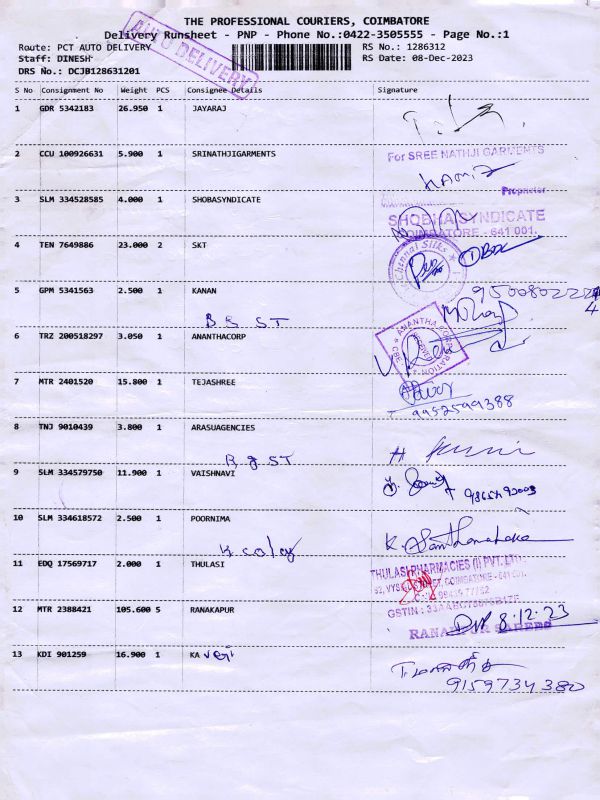 THE PROFESSIONAL COURIERS, COIMBATORE
Delivery Runsheet - PNP - Phone No.:0422-3505555 - Page No.:1
AUTO DELIVERY
Route: PCT AUTO DELIVERY
RS No.: 1286312
Staff: DINESH
RS Date: 08-Dec-2023
DRS No.: DCJB128631201
S No Consignment No Weight PCS Consignee Details Signature
1 GDR 5342183 26.950 1 JAYARAJ
2 CCU 100926631 5.900 1 SRINATHJIGARMENTS
For SREE NATHJI GARMENTS
Proprietor
3 SLM 334528585 4.000 1 SHOBASYNDICATE
SHOBHA SYNDICATE
COIMBATORE - 641 001.
4 TEN 7649886 23.000 2 SKT
Chennai Silks
5 GPM 5341563 2.500 1 KANAN
B S S T
6 TRZ 200518297 3.050 1 ANANTHACORP
ANANTHA CORPORATION
CBE
7 MTR 2401520 15.800 1 TEJASHREE
9952599388
8 TNJ 9010439 3.800 1 ARASUAGENCIES
R g S T
9 SLM 334579750 11.900 1 VAISHNAVI
10 SLM 334618572 2.500 1 POORNIMA
K coloy
11 EDQ 17569717 2.000 1 THULASI
THULASI PHARMACIES (I) PVT. LTD.
COIMBATORE - 641 001.
GSTIN :
12 MTR 2388421 105.600 5 RANAKAPUR
8.12.23
RANAKPUR SAREES
13 KDI 901259 16.900 1 KA
9159734380